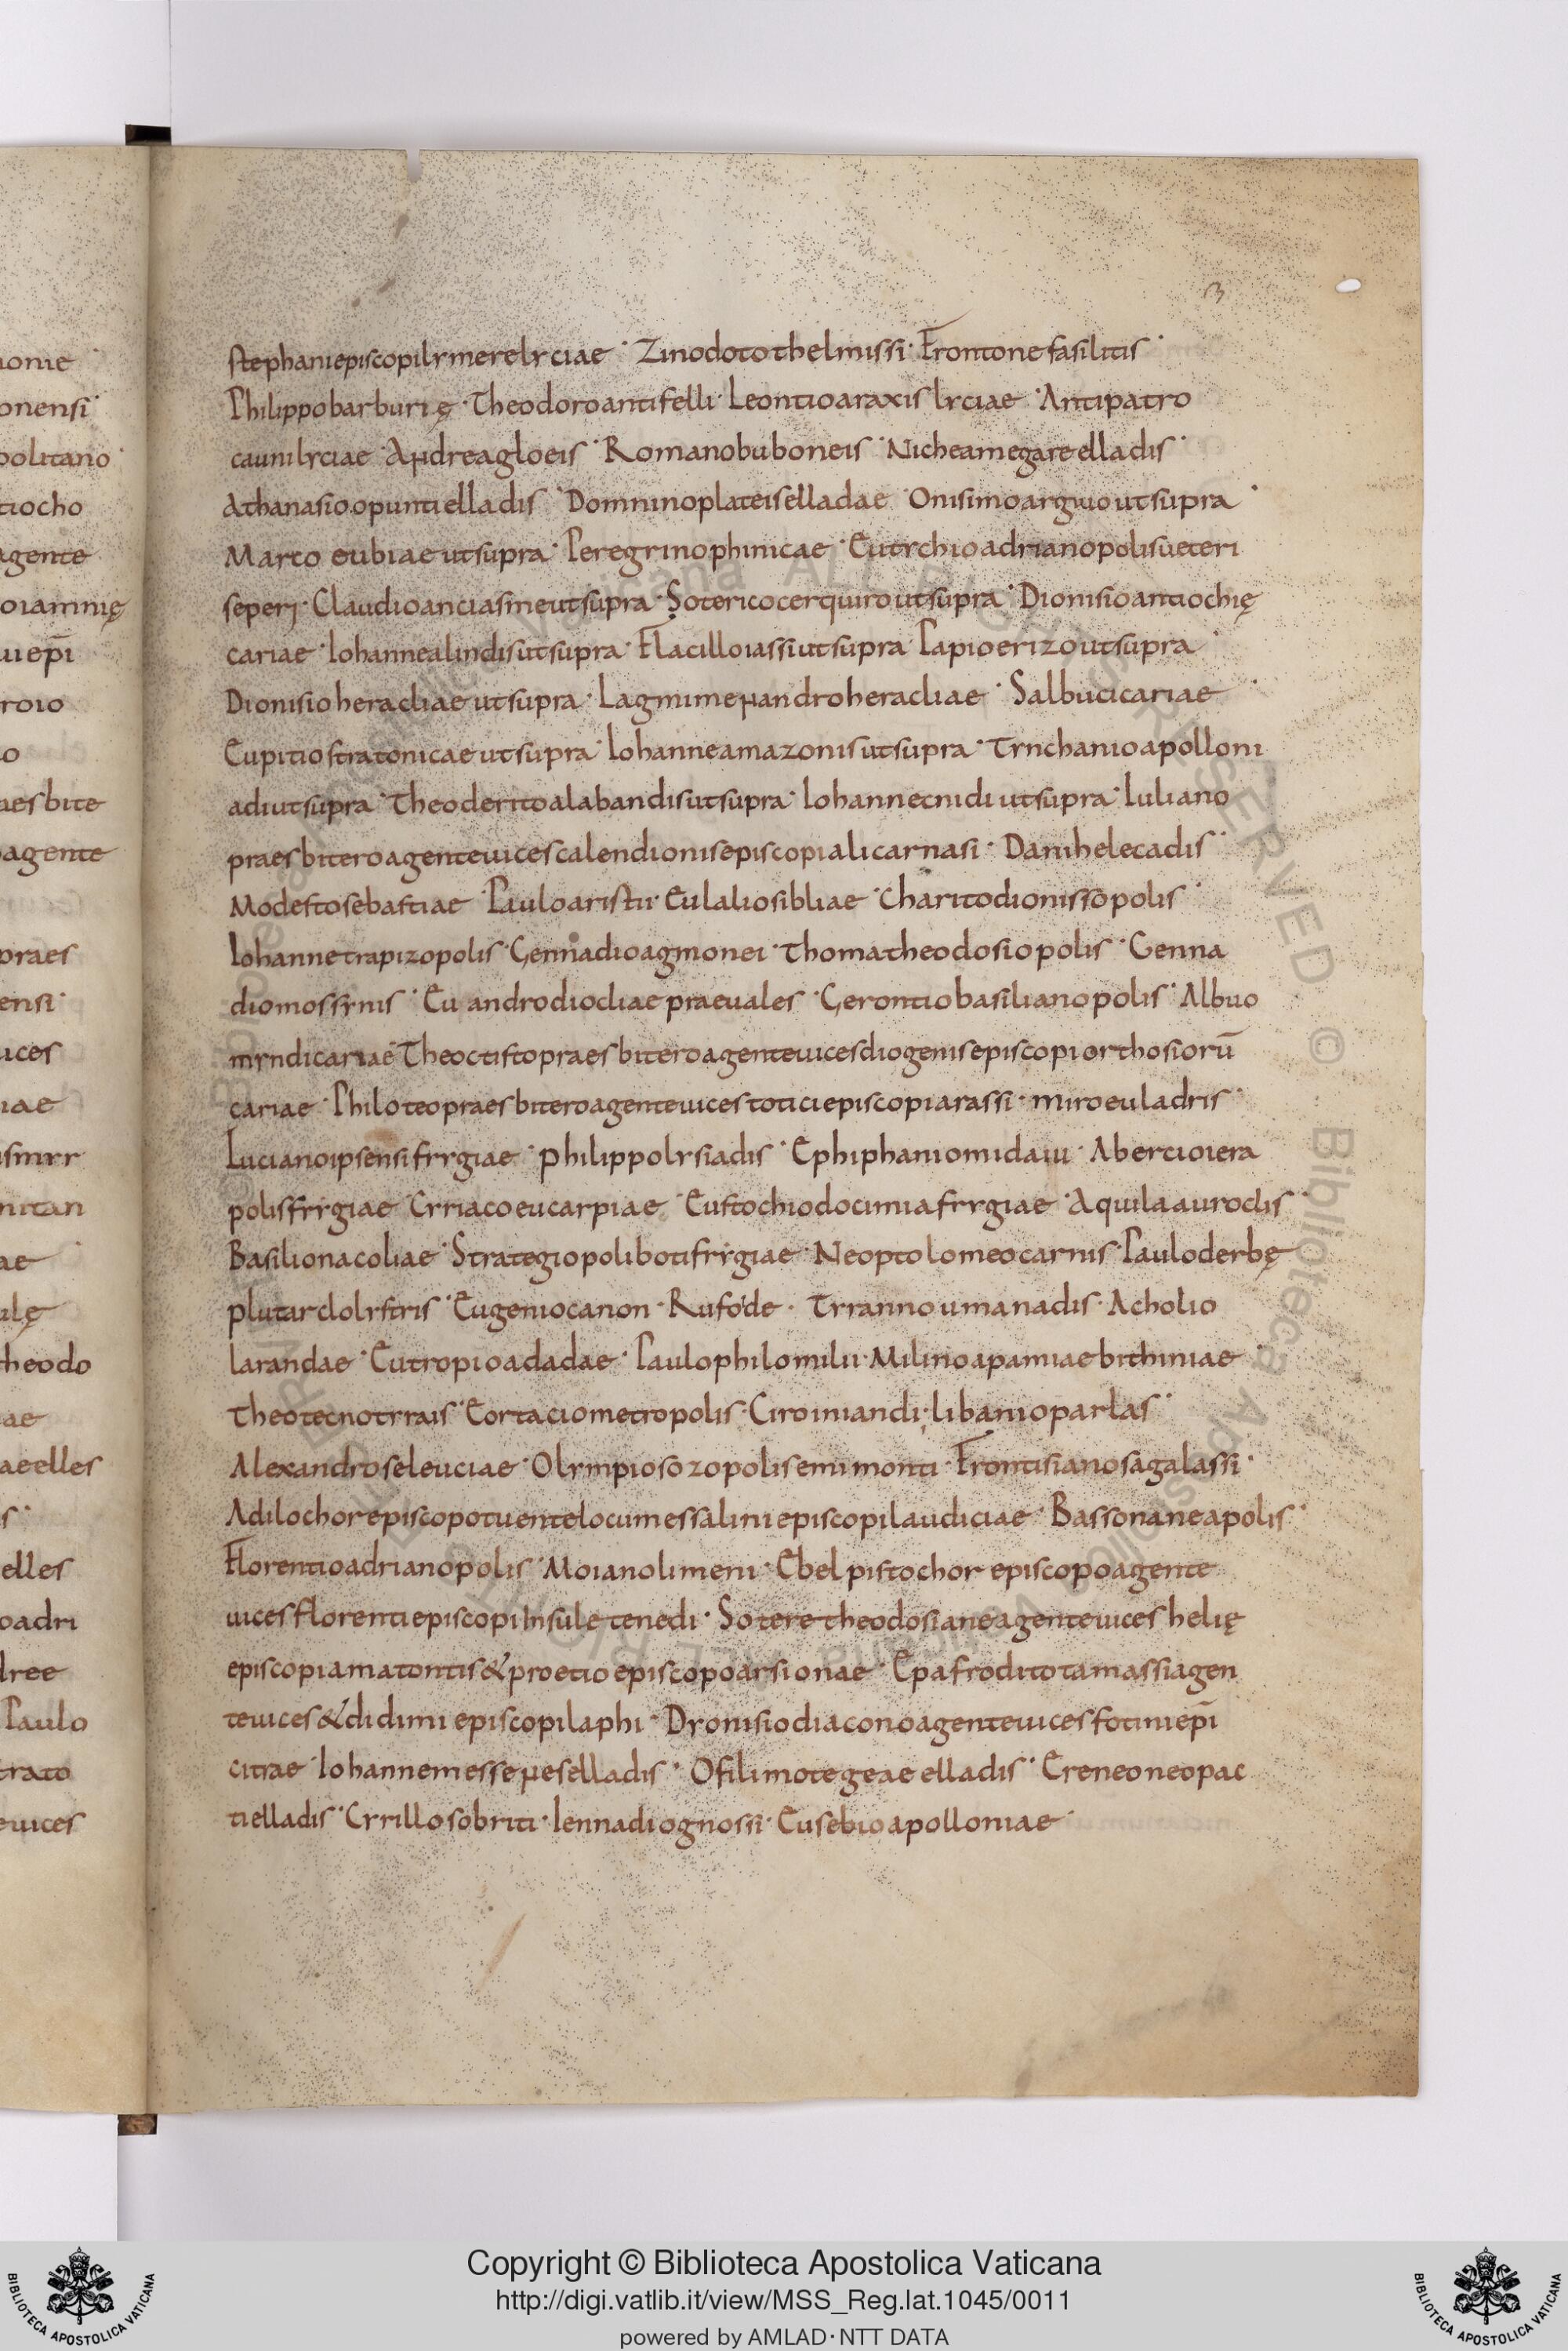 3
stephaniepiscopilymerelyciae · Zinodotothelmissi · Frontonefasilitis ·
Philippobarburię · Theodoroantifelli · Leontioaraxislyciae · Antipatro
caunilyciae · Andreagloeis · Romanobuboneis · Nicheamegareelladis ·
Athanasioopuntielladis · Domninoplateiselladae · Onisimoargiuoutsupra ·
Marco eubiaeutsupra · Peregrinophinicae · Eutychioadrianopolisueteri
seperi · Claudioanciasineutsupra · Sotericocerquiroutsupra · Dionisioantiochię
cariae · Iohannealindisutsupra · Flacilloiassiutsupra · Papioerizoutsupra ·
Dionisioheracliaeutsupra · Lagmimenandroheracliae · Salbucicariae ·
Eupitiostratonicaeutsupra · Iohanneamazonisutsupra · Tynchanioapolloni
adiutsupra · Theoderitoalabandisutsupra · Iohannecnidiutsupra · Iuliano
praesbiteroagenteuicescalendionisepiscopialicarnasi · Danihelecadis ·
Modestosebastiae · Pauloaristii · Eulaliosibliae · Charitodionissopolis ·
Iohannetrapizopolis · Gennadioagmonei · Thomatheodosiopolis · Genna
diomossynis · Eu androdiocliaepraeuales · Gerontiobasilianopolis · Albuo
myndicariae Theoctistopraesbiteroagenteuicesdiogenisepiscopiorthosiorū
cariae · Philoteopraesbiteroagenteuicestoticiepiscopiarassi · miroeuladris ·
Lucianoipsensifrygiae · philippolysiadis · Ephiphaniomidaiu · Abercioiera
polisfrygiae · Cyriacoeucarpiae · Eustochiodocimiafrygiae · Aquilaauroclis ·
Basilionacoliae · Strategiopolibotifrygiae · Neoptolomeocarnis · Pauloderbę
plutarclolystris · Eugeniocanon · Rufode · Tyrannoumanadis · Acholio
larandae · Eutropioadadae · Paulophilomilii · Milinoapamiaebithiniae ·
Theotecnotyrais · Eortaciometropolis · Ciroiniandi · libanioparlas ·
Alexandroseleuciae · Olympiosozopolisemimonti · Frontisianosagalassi ·
Adilochorepiscopotuentelocumessaliniepiscopilaudiciae · Bassonaneapolis ·
Florentioadrianopolis · Moianolimeni · Ebelpistochor episcopoagente
uicesflorentiepiscopiInsuletenedi · Soteretheodosianeagenteuices helię
episcopiamatontis&proetioepiscopoarsionae · Epafroditotamassiagen
teuices&didimiepiscopilaphi · Dyonisiodiaconoagenteuicesfotiniepī
citrae · Iohannemesseneselladis · Ofilimotegeaeelladis · Ereneoneopac
tielladis · Cyrillosobriti · Iennadiognossi · Eusebioapolloniae ·
Copyright © Biblioteca Apostolica Vaticana
http://digi.vatlib.it/view/MSS_Reg.lat.1045/0011
powered by AMLAD·NTT DATA